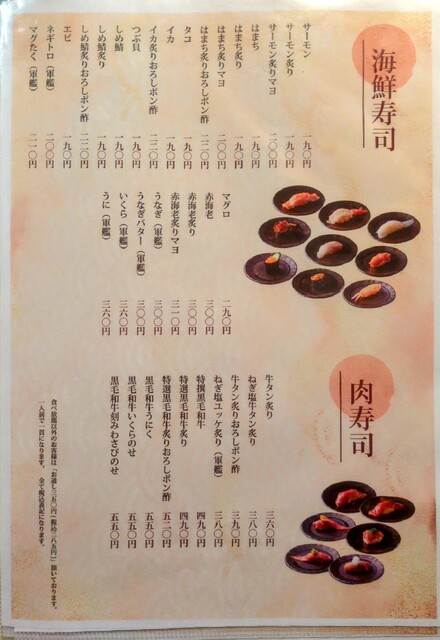 海鮮寿司
サーモン 一九〇円
サーモン炙り 一九〇円
サーモン炙りマヨ 二〇〇円
はまち 一九〇円
はまち炙り 一九〇円
はまち炙りマヨ 二〇〇円
はまち炙りおろしポン酢 二二〇円
タコ 一九〇円
イカ 一九〇円
イカ炙りおろしポン酢 二二〇円
つぶ貝 一九〇円
しめ鯖 一九〇円
しめ鯖炙り 一九〇円
しめ鯖炙りおろしポン酢 二二〇円
エビ 一九〇円
ネギトロ（軍艦） 二〇〇円
マグたく（軍艦） 二一〇円
マグロ 二九〇円
赤海老 三〇〇円
赤海老炙り 三〇〇円
赤海老炙りマヨ 三一〇円
うなぎ（軍艦） 三〇〇円
うなぎバター（軍艦） 三〇〇円
いくら（軍艦） 三六〇円
うに（軍艦） 三六〇円
肉寿司
牛タン炙り 三六〇円
ねぎ塩牛タン炙り 三八〇円
牛タン炙りおろしポン酢 三九〇円
ねぎ塩ユッケ炙り（軍艦） 三八〇円
特撰黒毛和牛 四九〇円
特選黒毛和牛炙り 四九〇円
特選黒毛和牛炙りおろしポン酢 五二〇円
黒毛和牛うにく 五五〇円
黒毛和牛いくらのせ 五五〇円
黒毛和牛刻みわさびのせ 五五〇円
食べ放題以外のお客様は「お通し三五〇円（税込三八五円）」頂いております。
一人前で一貫になります。 全て税込表記になります。